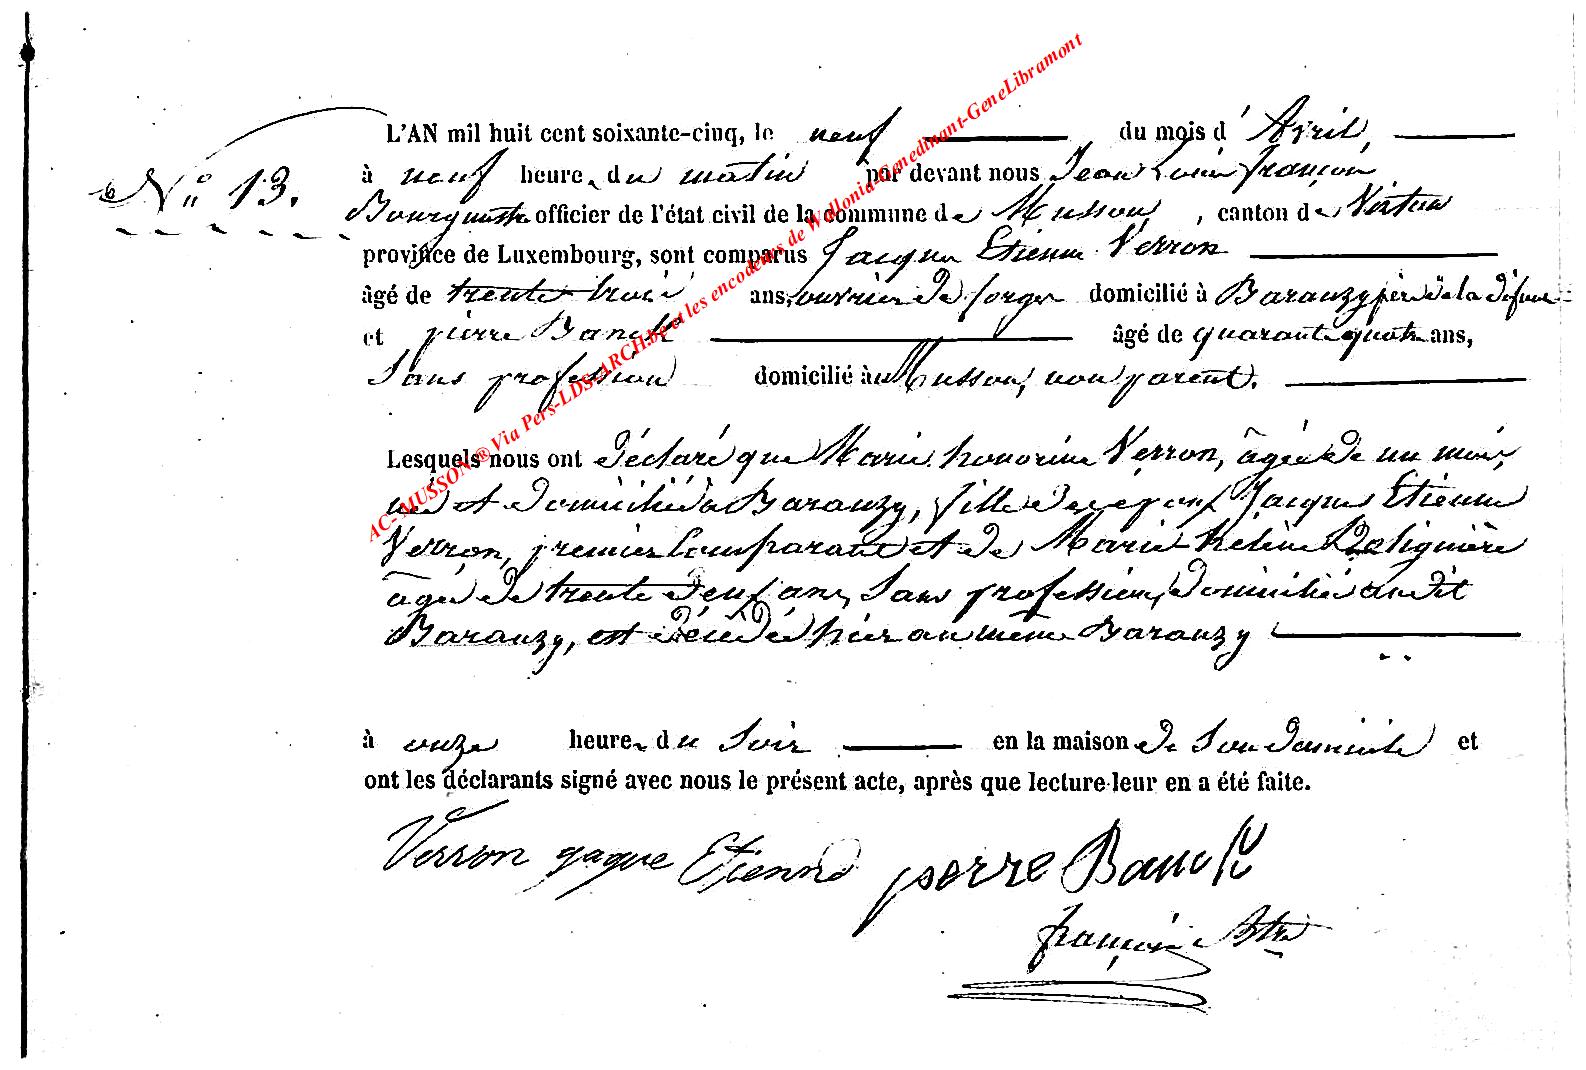 L'AN mil huit cent soixante-cinq, le neuf du mois d' Avril,
Nº 13. à neuf heures du matin par devant nous Jean Louis françois
officier de l'état civil de la commune de Musson, canton de Virton
province de Luxembourg, sont comparus Jacque Etienne Verron
âgé de trente trois ans, ouvrier de forges domicilié à Baranzy père de la défunte
et pierre Banck âgé de quarante quatre ans,
Sans profession domicilié à Musson, non parent.
Lesquels nous ont déclaré que Marie honorine Verron, âgée de un mois,
née et domiciliée à Baranzy, fille de ce Jacques Etienne
Verron, premier Comparant et de Marie hélène
âgée de trente deux ans, Sans profession, domiciliée au dit
Baranzy, est décédée hier au même Baranzy
à onze heures du Soir en la maison de Son domicile et
ont les déclarants signé avec nous le présent acte, après que lecture leur en a été faite.
Verron gaque Etienne pierre Banck
françois
AC- MUSSON ® Via Pers-LDS-ARCH.be et les encodeurs de Wallonia-Genedinant-GeneLibramont